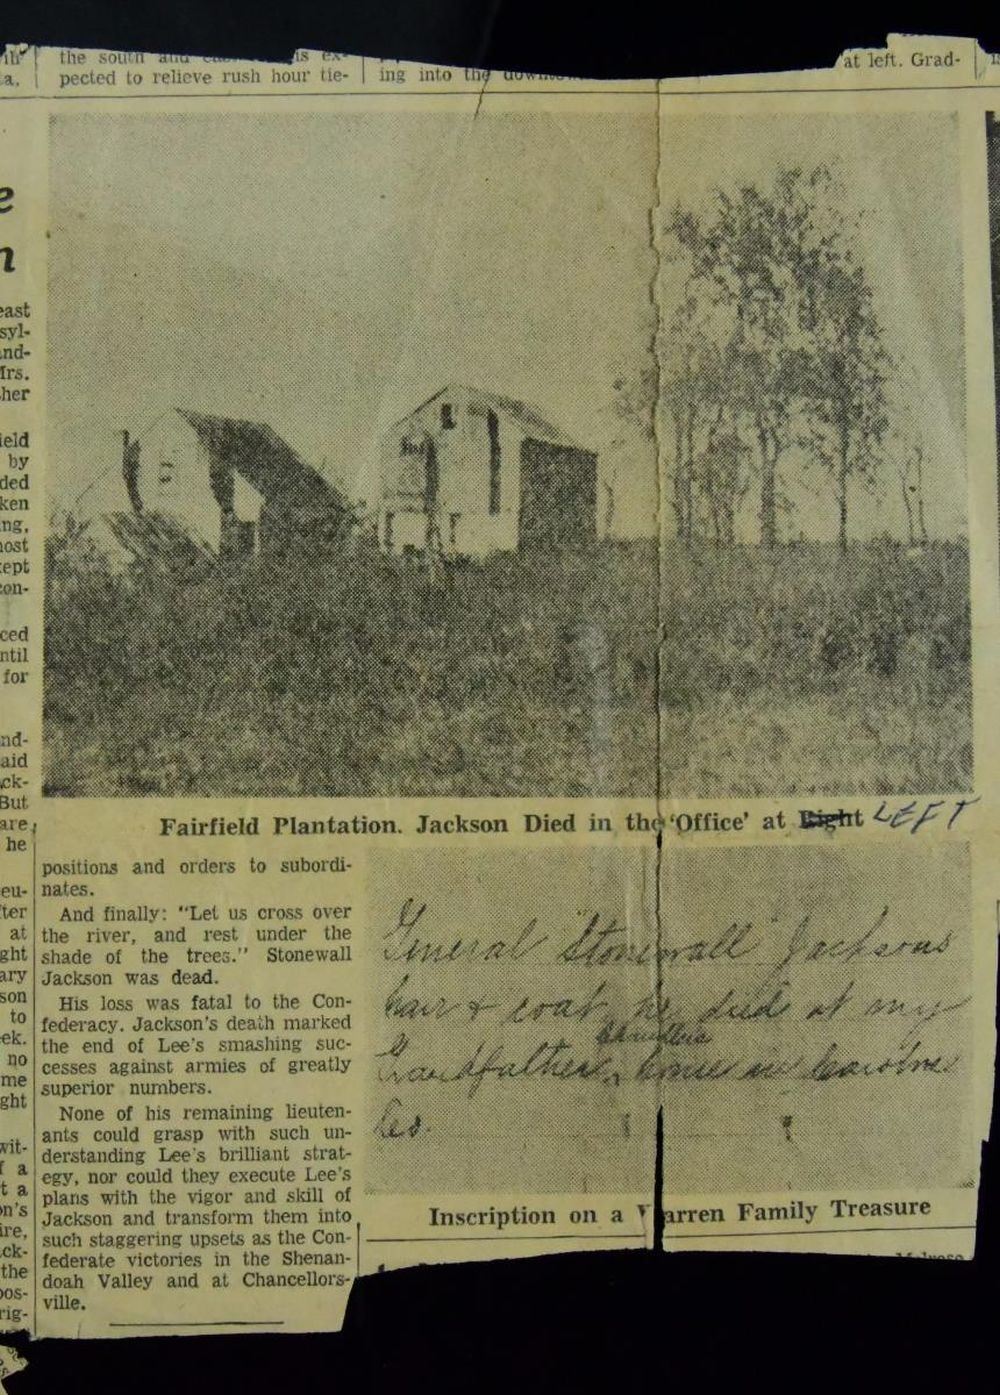 the south and
pected to relieve rush hour tie-
ing into the
at left. Grad-
a,
e
n
east
syl-
and-
Mrs.
her
ield
by
ded
ken
ng,
most
ept
con-
ced
ntil
for
and-
aid
ck-
But
are
he
eu-
ter
at
ght
ary
son
to
ek.
no
me
ght
wit-
f a
t a
on's
ire,
ck-
the
pos-
rig-
Fairfield Plantation. Jackson Died in the 'Office' at Right LEFT
positions and orders to subordi-
nates.
And finally: "Let us cross over
the river, and rest under the
shade of the trees." Stonewall
Jackson was dead.
His loss was fatal to the Con-
federacy. Jackson's death marked
the end of Lee's smashing suc-
cesses against armies of greatly
superior numbers.
None of his remaining lieuten-
ants could grasp with such un-
derstanding Lee's brilliant strat-
egy, nor could they execute Lee's
plans with the vigor and skill of
Jackson and transform them into
such staggering upsets as the Con-
federate victories in the Shenan-
doah Valley and at Chancellors-
ville.
General "Stonewall" Jacksons
hair & coat, he died at my
Chandlers
Grandfather home in Caroline
Co.
Inscription on a Warren Family Treasure